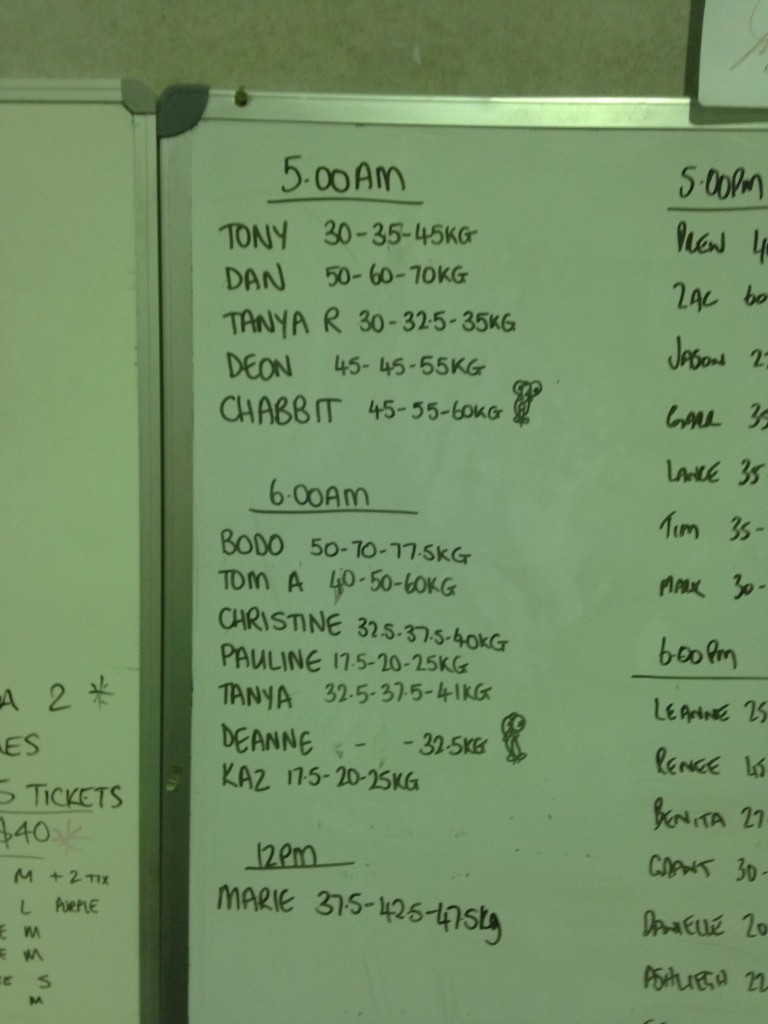 5.00AM
TONY 30-35-45KG
DAN 50-60-70KG
TANYA R 30-32.5-35KG
DEON 45-45-55KG
CHABBIT 45-55-60KG
6.00AM
BODO 50-70-77.5KG
TOM A 40-50-60KG
CHRISTINE 32.5-37.5-40KG
PAULINE 17.5-20-25KG
TANYA 32.5-37.5-41KG
DEANNE - -32.5KG
KAZ 17.5-20-25KG
12PM
MARIE 37.5-42.5-47.5kg
5.00PM
DREW 4
ZAC 60
JASON 2
GARR 35
LANCE 35
TIM 35-
MARK 30-
6.00PM
LEANNE 25
RENEE
BENITA 27
GRANT 30-
DANIELLE 20
ASHLIEGH 22
A 2 *
ES
5 TICKETS
$40 *
M + 2 TIX
L PURPLE
E M
E M
E S
M